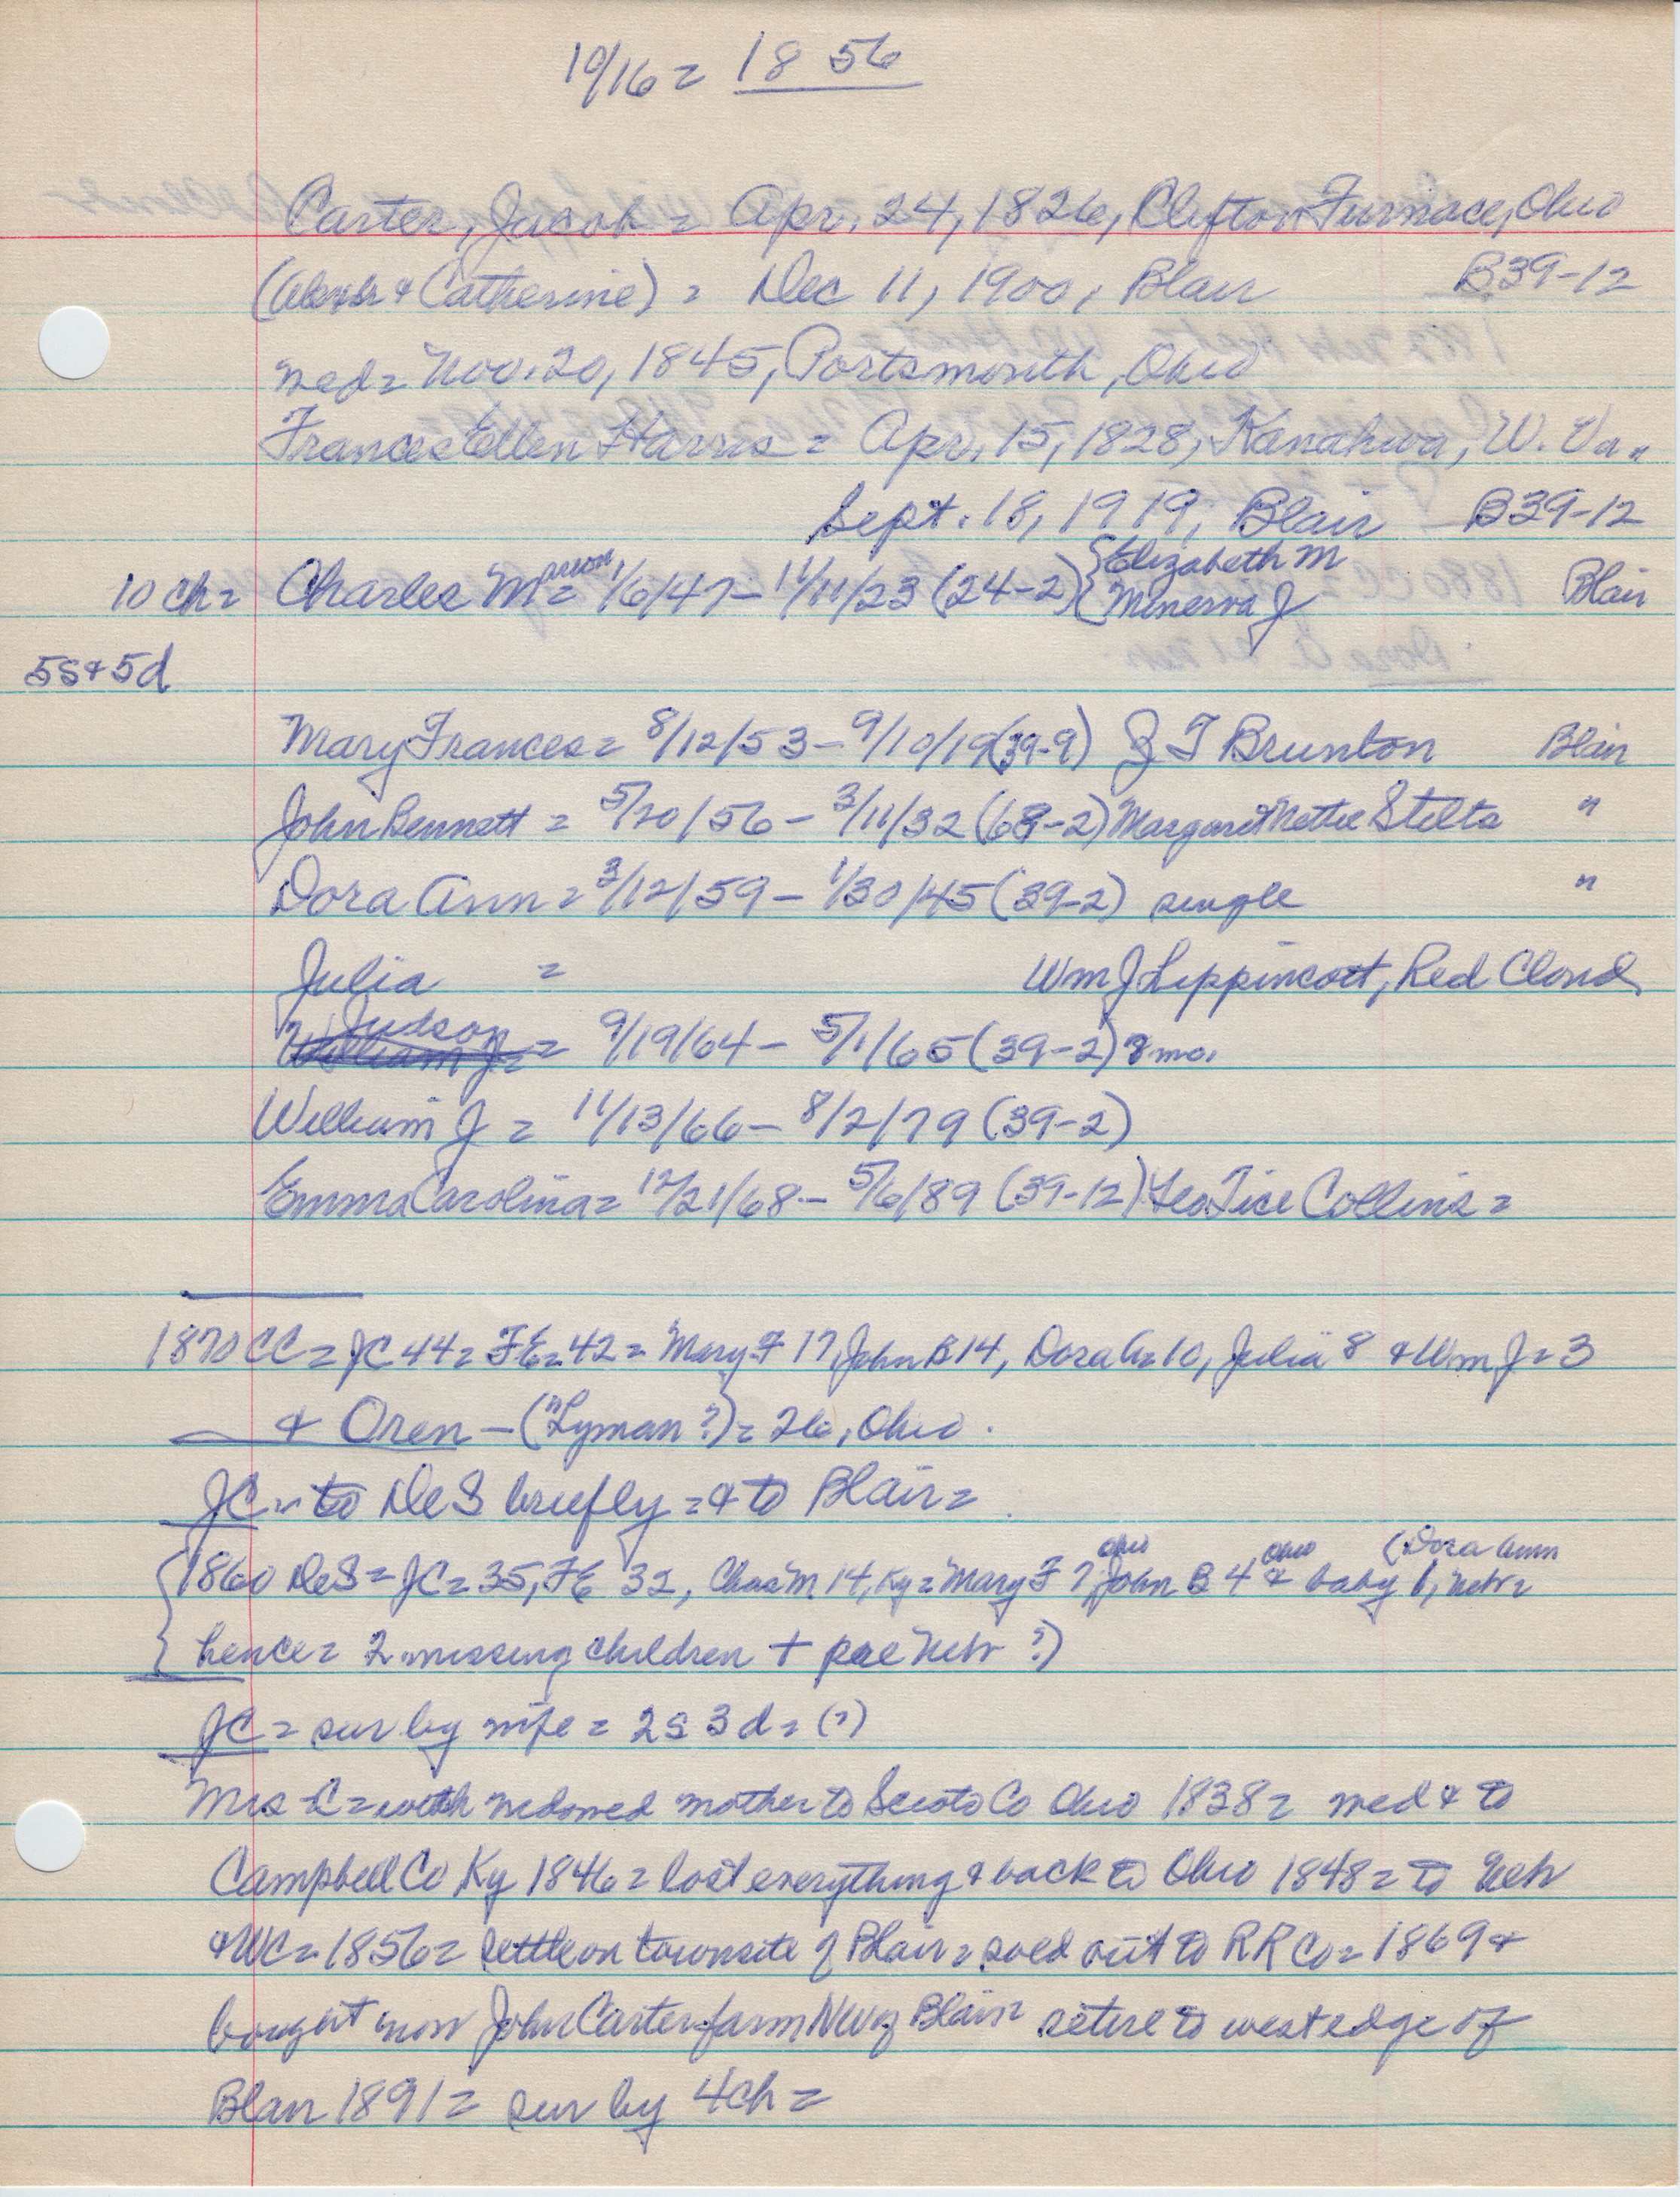 10/16 = 18 56
Carter, Jacob = Apr. 24, 1826, Clifton Furnace, Ohio
( & Catherine) = Dec 11, 1900, Blair B39-12
med = Nov. 20, 1845, Portsmouth, Ohio
Frances Ellen Harris = Apr. 15, 1828, Kanahwa, W. Va =
Sept. 18, 1919, Blair B39-12
10 ch = Charles Marion = 1/6/47 - 11/11/23 (24-2) { Elizabeth M Blair
Minerva J
5s & 5d
Mary Frances = 8/12/53 - 9/10/19 (39-9) J T Brunton Blair
John Bennett = 5/20/56 - 3/11/32 (68-2) Margaret Nettie Stilts "
Dora Ann = 3/12/59 - 1/30/45 (39-2) single "
Julia = Wm J Lippincott, Red Cloud
Judson
William J = 9/19/64 - 5/1/65 (39-2) 8 mo.
William J = 11/13/66 - 8/2/79 (39-2)
Emma Carolina = 12/21/68 - 5/6/89 (39-12) Tice Collins =
1870 CC = JC 44 = FE = 42 = Mary F 17, John B 14, Dora A = 10, Julia 8 & Wm J = 3
& Oren - ("Lyman?) = 26, Ohio.
JC = to DeS briefly = & to Blair =
{ 1860 DeS = JC = 35, FE 32, Chas M 14, Ky = Mary F 7 Ohio John B 4 Ohio & baby 1, Nebr = (Dora Ann
hence = 2 missing children + pre Nebr ?)
JC = sur by wife = 2s 3d = (?)
Mrs C = with widowed mother to Scioto Co Ohio 1838 = med & to
Campbell Co Ky 1846 = lost everything & back to Ohio 1848 = to Nebr
& WC = 1856 = settle on townsite of Blair = sold out to RR Co = 1869 &
bought now John Carter farm NW of Blair = retire to west edge of
Blair 1891 = sur by 4ch =